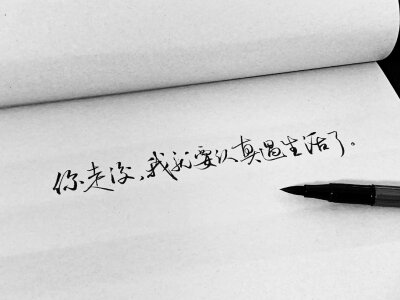 你走后，我就要认真过生活了。